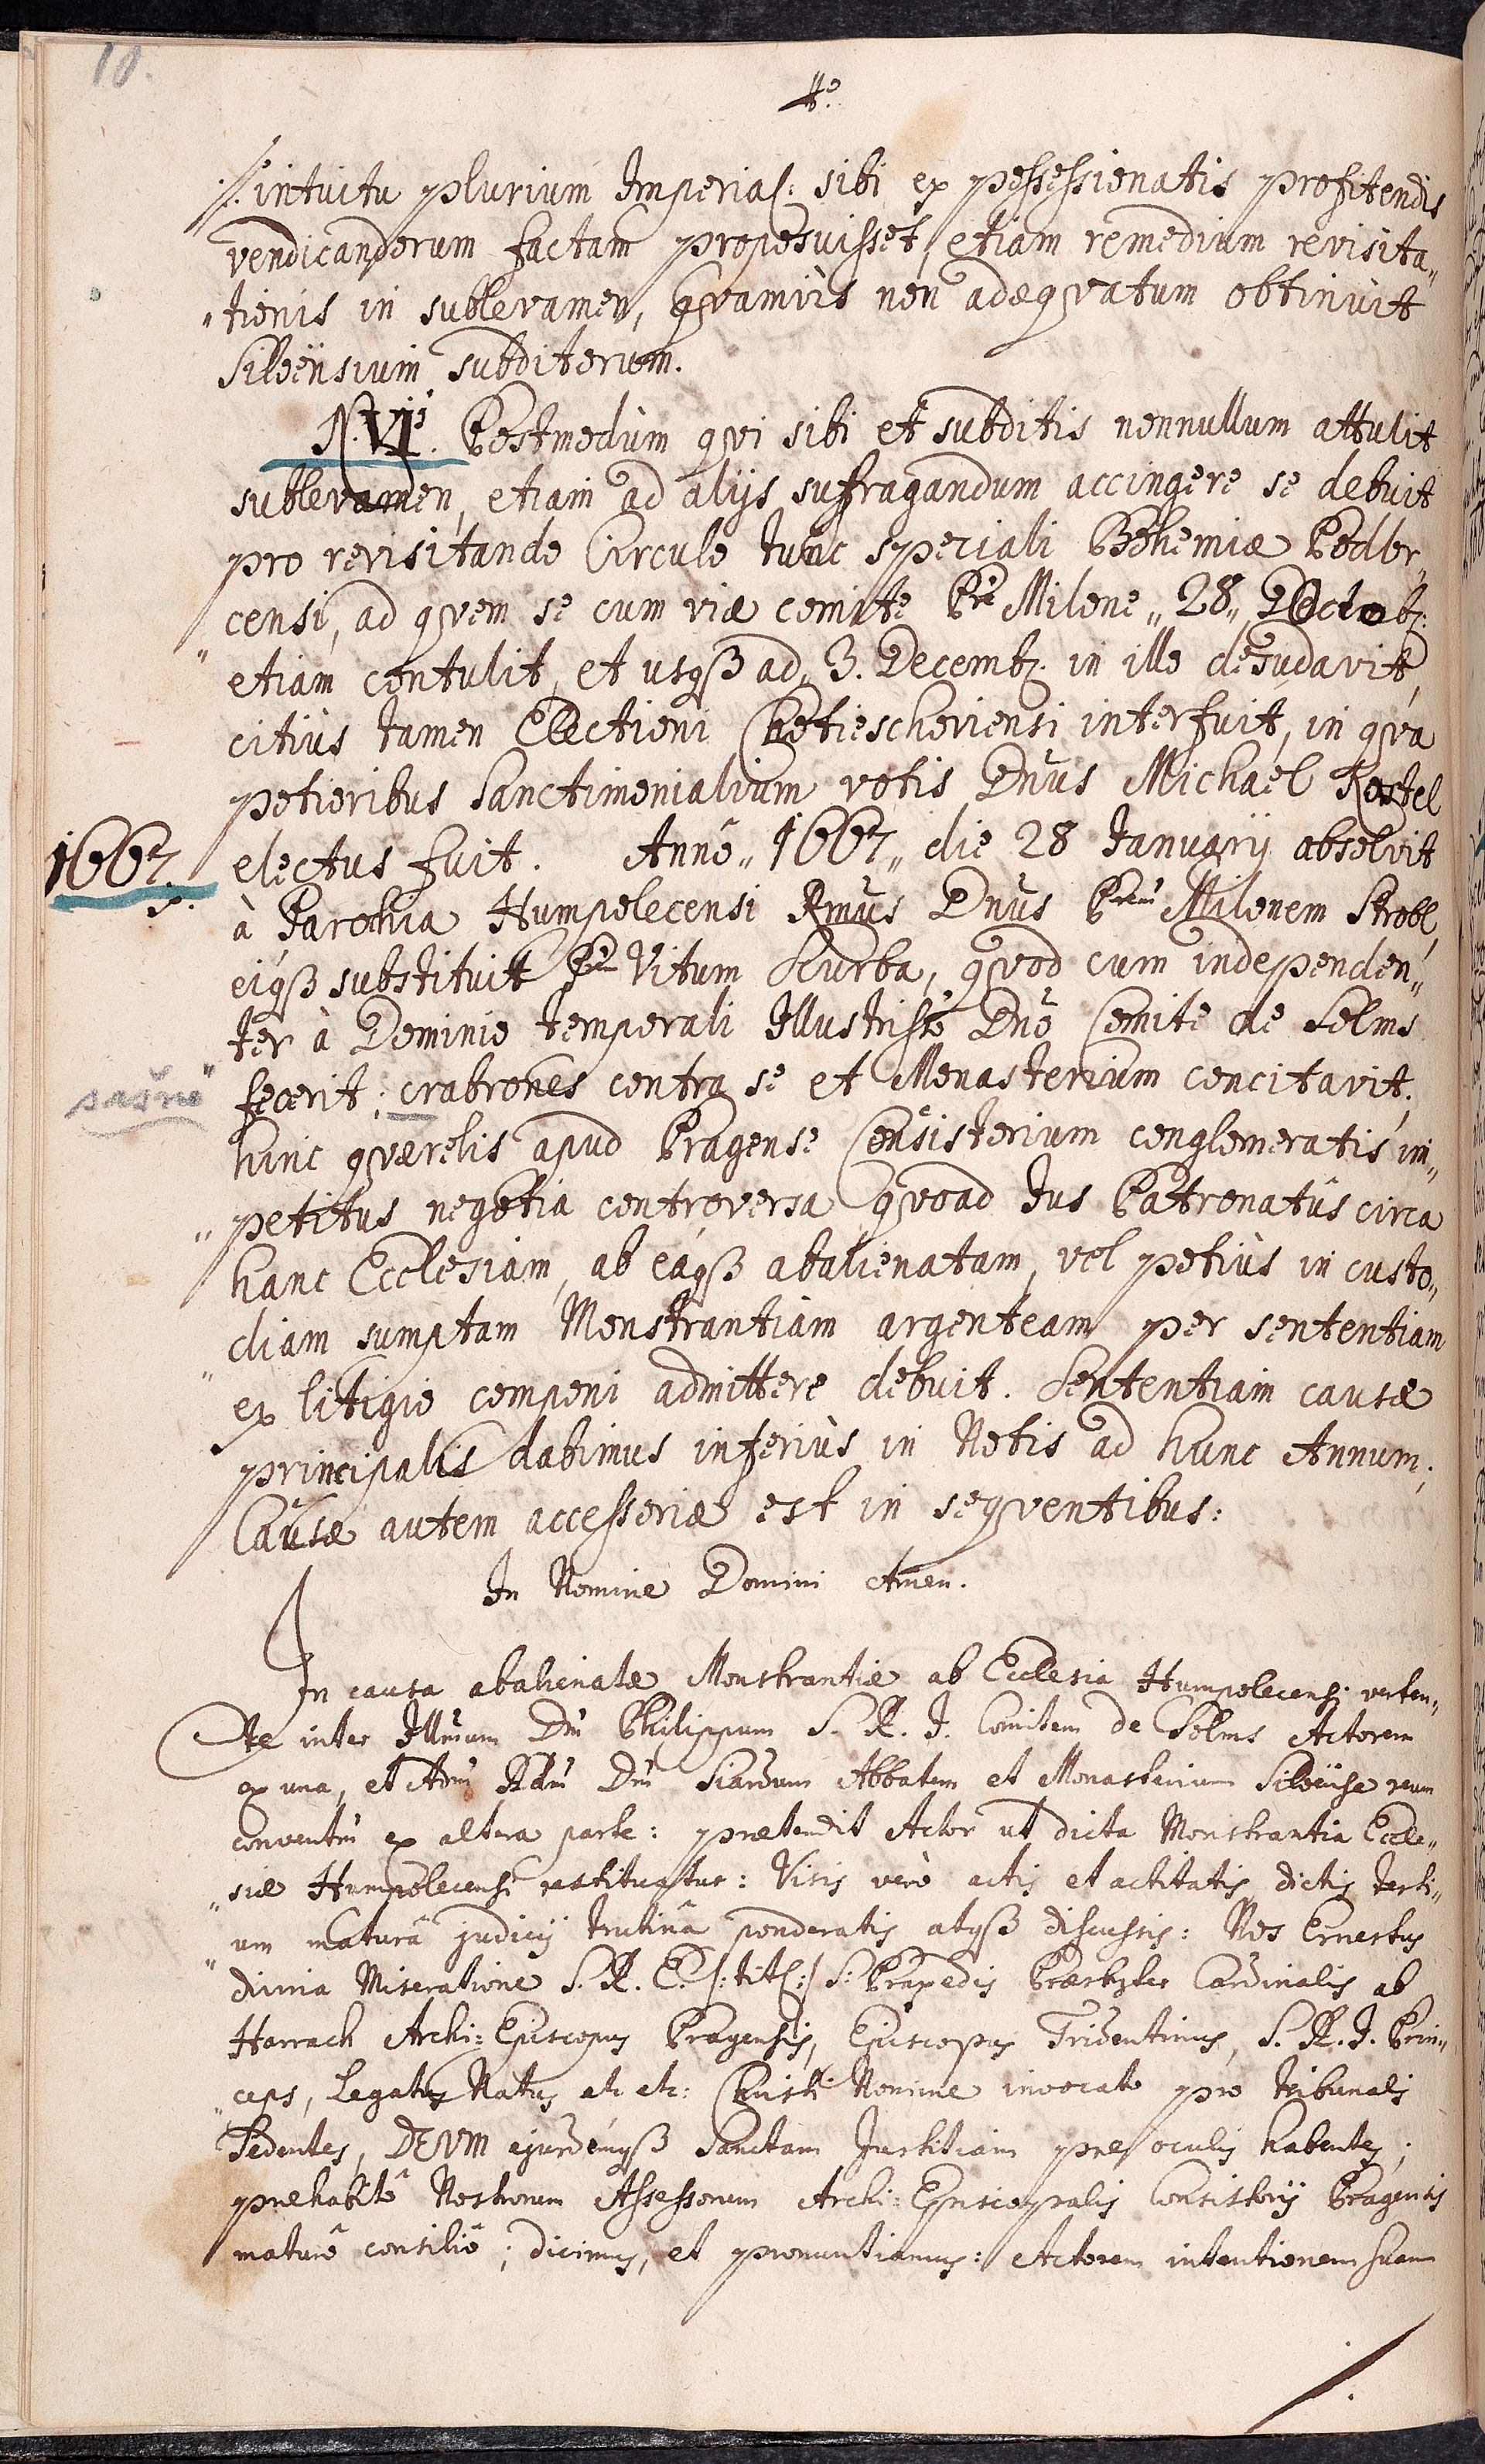 10.
4º
./. intuitu plurium Imperial: sibi ex possessionatis profitendis
vendicandorum factam proposuisset, etiam remedium revisita„
„tionis in sublevamen, qvamvis non adæqvatum obtinuit
Siloënsium subditorum.
N. VI. Postmodùm qvi sibi et subditis nonnullum attulit
sublevamen, etiam ad alijs suffragandum accingere se debuit
pro revisitando Circulo tunc speciali Bohemiæ Podbr„
„censi, ad qvem se cum viæ comite Pre Milone „28„ Octobr:
etiam contulit, et usqß ad 3. Decembr. in illo desudavit,
citiùs tamen Electioni Chotieschoviensi interfuit, in qva
potioribus Sanctimonialium votis Dnus Michaël Kostel
electus fuit. Annô „1667„ die 28 Januarij absolvit
1667.
à Parochia Humpolecensi Rmus Dnus Prem Milonem Strobl,
eiqß substituit Prem Vitum Kurba, qvod cum independen„
ter à Dominio temporali Illustrissô Dnô Comite de Solms
fecerit; crabrones contra se et Monasterium concitavit.
sašně
hinc qværelis apud Pragense Consistorium conglomeratis im„
„petitus negotia controversa qvoad Jus Patronatûs circa
hanc Ecclesiam, ab eáqß abalienatam, vel potiùs in custo„
„diam sumptam Monstrantiam argenteam per sententiam
ex litigio componi admittere debuit. Sententiam causæ
principalis dabimus inferiùs in Notis ad hunc Annum;
Causæ autem accessoriæ est in seqventibus:
In Nomine Domini Amen.
In causa abalienatæ Monstrantiæ ab Ecclesia Humpolecensi verten„
te inter Illmum Dm Philippum S. R. I. Comitem de Solms Actorem
ex una, et Adm Rdm Dm Siardum Abbatem et Monasterium Siloënse reum
conventm ex altera parte: prætendit Actor ut dicta Monstrantia Eccle„
„siæ Humpolecensi restituatur: Visis verò actis et actitatis, dictis testi„
„um maturâ judicij trutinâ ponderatis atqß discussis: Nos Ernestus
divina Miseratione S. R. E. /:titl:/ S: Praxedis Præsbyter Cardinalis ab
Harrach Archi=Episcopus Pragensis, Episcopus Tridentinus, S. R. I. Prin„
„ceps, Legatus Natus etc etc: Christi Nomine invocato pro tribunali
Sedentes, DEUM ejusdémqß Sanctam Justitiam præ oculis habentes;
præhabitô Nostrorum Assessorum Archi=Episcopalis Consistorij Pragensis
maturô consiliô; dicimus, et pronuntiamus: Actorem intentionem suam